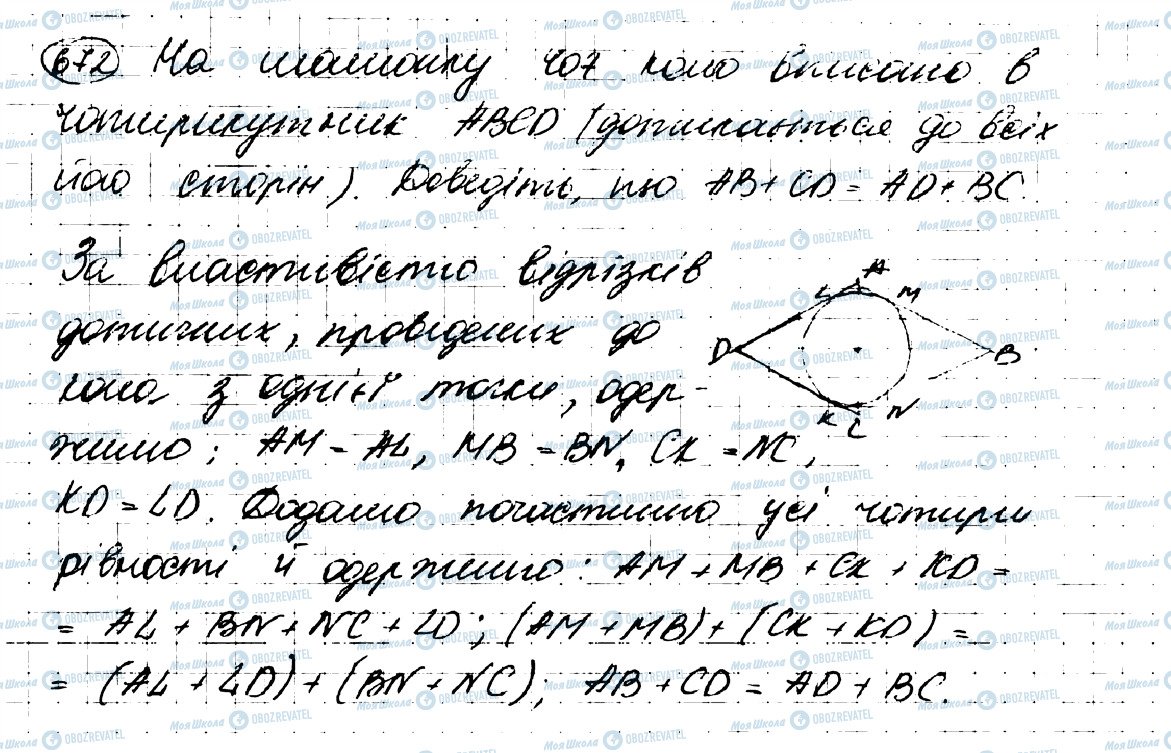 672 На малюнку 407 коло вписано в
чотирикутник ABCD (дотикається до всіх
його сторін). Доведіть, що AB + CD = AD + BC.
За властивістю відрізків
дотичних, проведених до
кола з однієї точки, одер-
жимо: AM = AL, MB = BN, CK = NC,
KD = LD. Додамо почастинно усі чотири
рівності й одержимо: AM + MB + CK + KD =
= AL + BN + NC + LD; (AM + MB) + (CK + KD) =
= (AL + LD) + (BN + NC); AB + CD = AD + BC.
A
L M
D B
K C N
МояШкола OBOZREVATEL